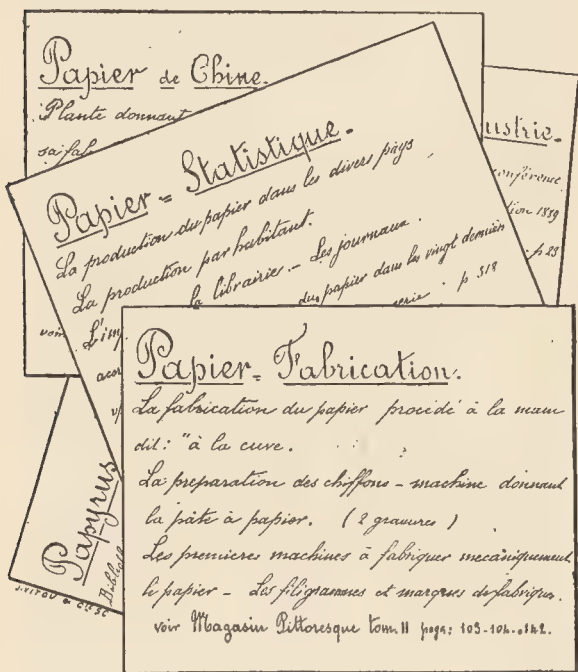 Papier de Chine.
Plante donnant
sa fab
voir
ustrie.
conférence
tion 1889
p 23
Papier = Statistique.
La production du papier dans les divers pays
La production par habitant.
L'imp la librairie. – Les journaux.
du papier dans les vingt dernièr
serie. p 318
Papier = Fabrication.
La fabrication du papier procédé à la main
dit: "à la cuve.
La preparation des chiffons – machine donnant
la pâte à papier. (2 gravures)
Les premieres machines à fabriquer mecaniquement
le papier – Les filigrammes et marques de fabrique.
voir Magasin Pittoresque tom. II pages: 103-104.0142.
Papyrus
Biblioth